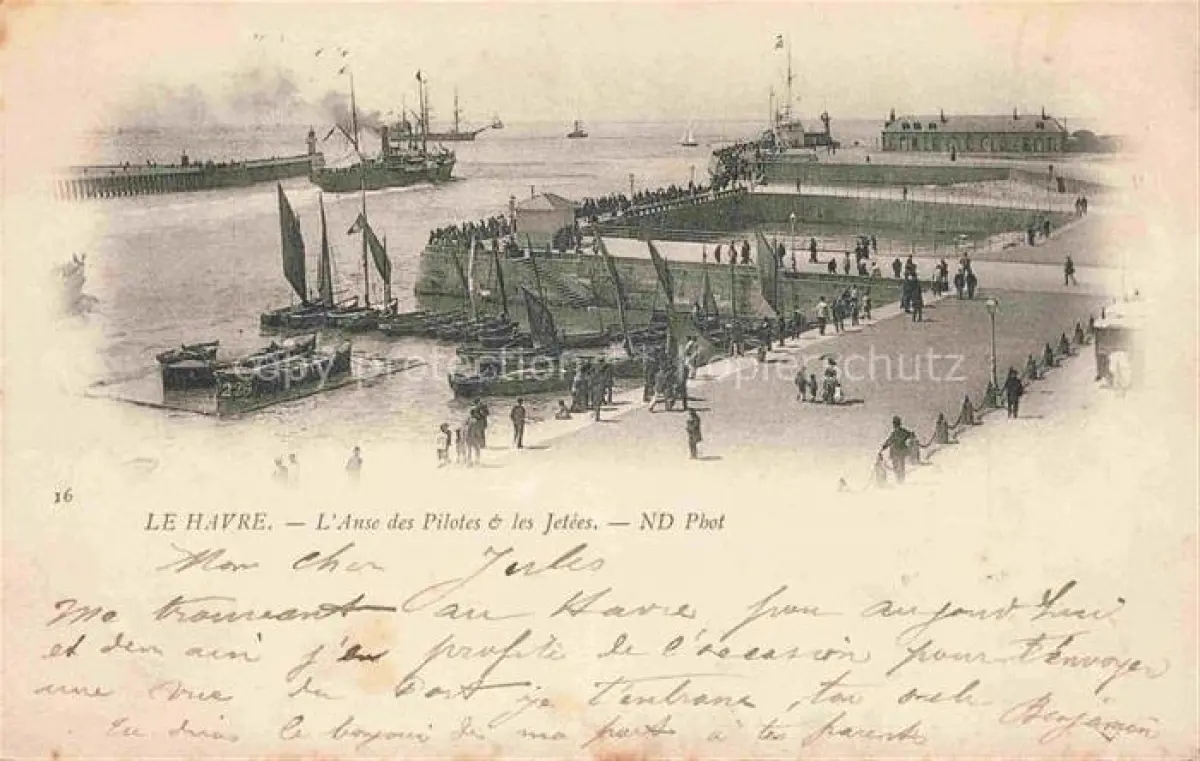 copy protection Kopierschutz
16
LE HAVRE. — L'Anse des Pilotes & les Jetées. — ND Phot
Mon cher Jules
Me trouvant au Havre pour aujourd'hui
et demain j'en profite de l'occasion pour t'envoyer
une vue du Port je t'embrasse ton oncle
Benjamin
Tu diras le bonjour de ma part à tes parents